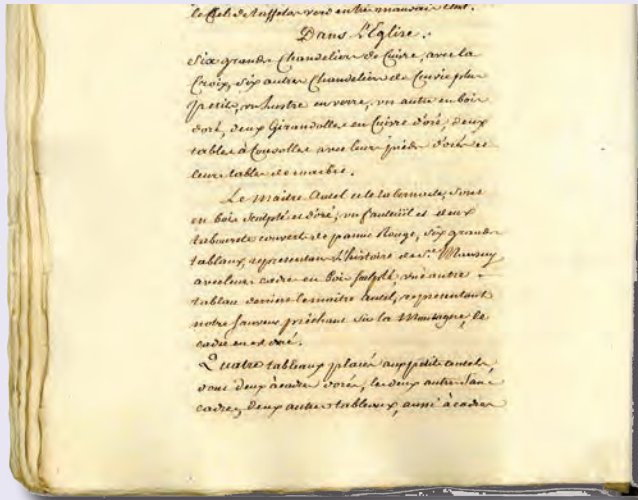 le Ciel de taffetas verd en très mauvais Etat.
Dans l'Eglise.
Six grands Chandeliers de Cuivre, avec la
Croix, six autres Chandeliers de Cuivre plus
petits, un lustre en verre, un autre en bois
doré, deux Girandolles en Cuivre doré, deux
tables à Consolles avec leurs pieds dorés et
leurs tables de marbre.
Le Maitre Autel et le tabernacle, sont
en bois sculpté et doré, un fauteüil et deux
tabourets couverts de panne Rouge, six grands
tableaux, representans l'histoire de St. Mansuy
avec leurs cadres en bois sculpté, une autre
tableau derriere le maitre Autel, representant
notre Sauveur prêchant sur la Montagne, le
cadre en est doré.
Quatre tableaux placés aux petits autels,
dont deux à cadres dorés, les deux autres sans
cadres, deux autres tableaux, aussi à cadres